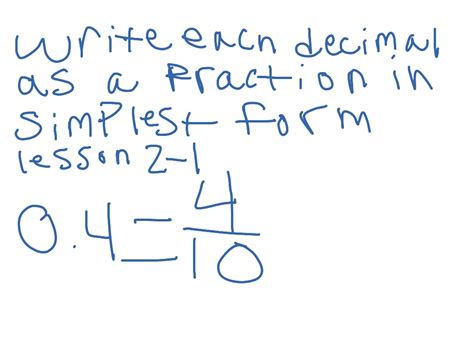 write each decimal
as a fraction in
simplest form
lesson 2-1
0.4 = 4/10